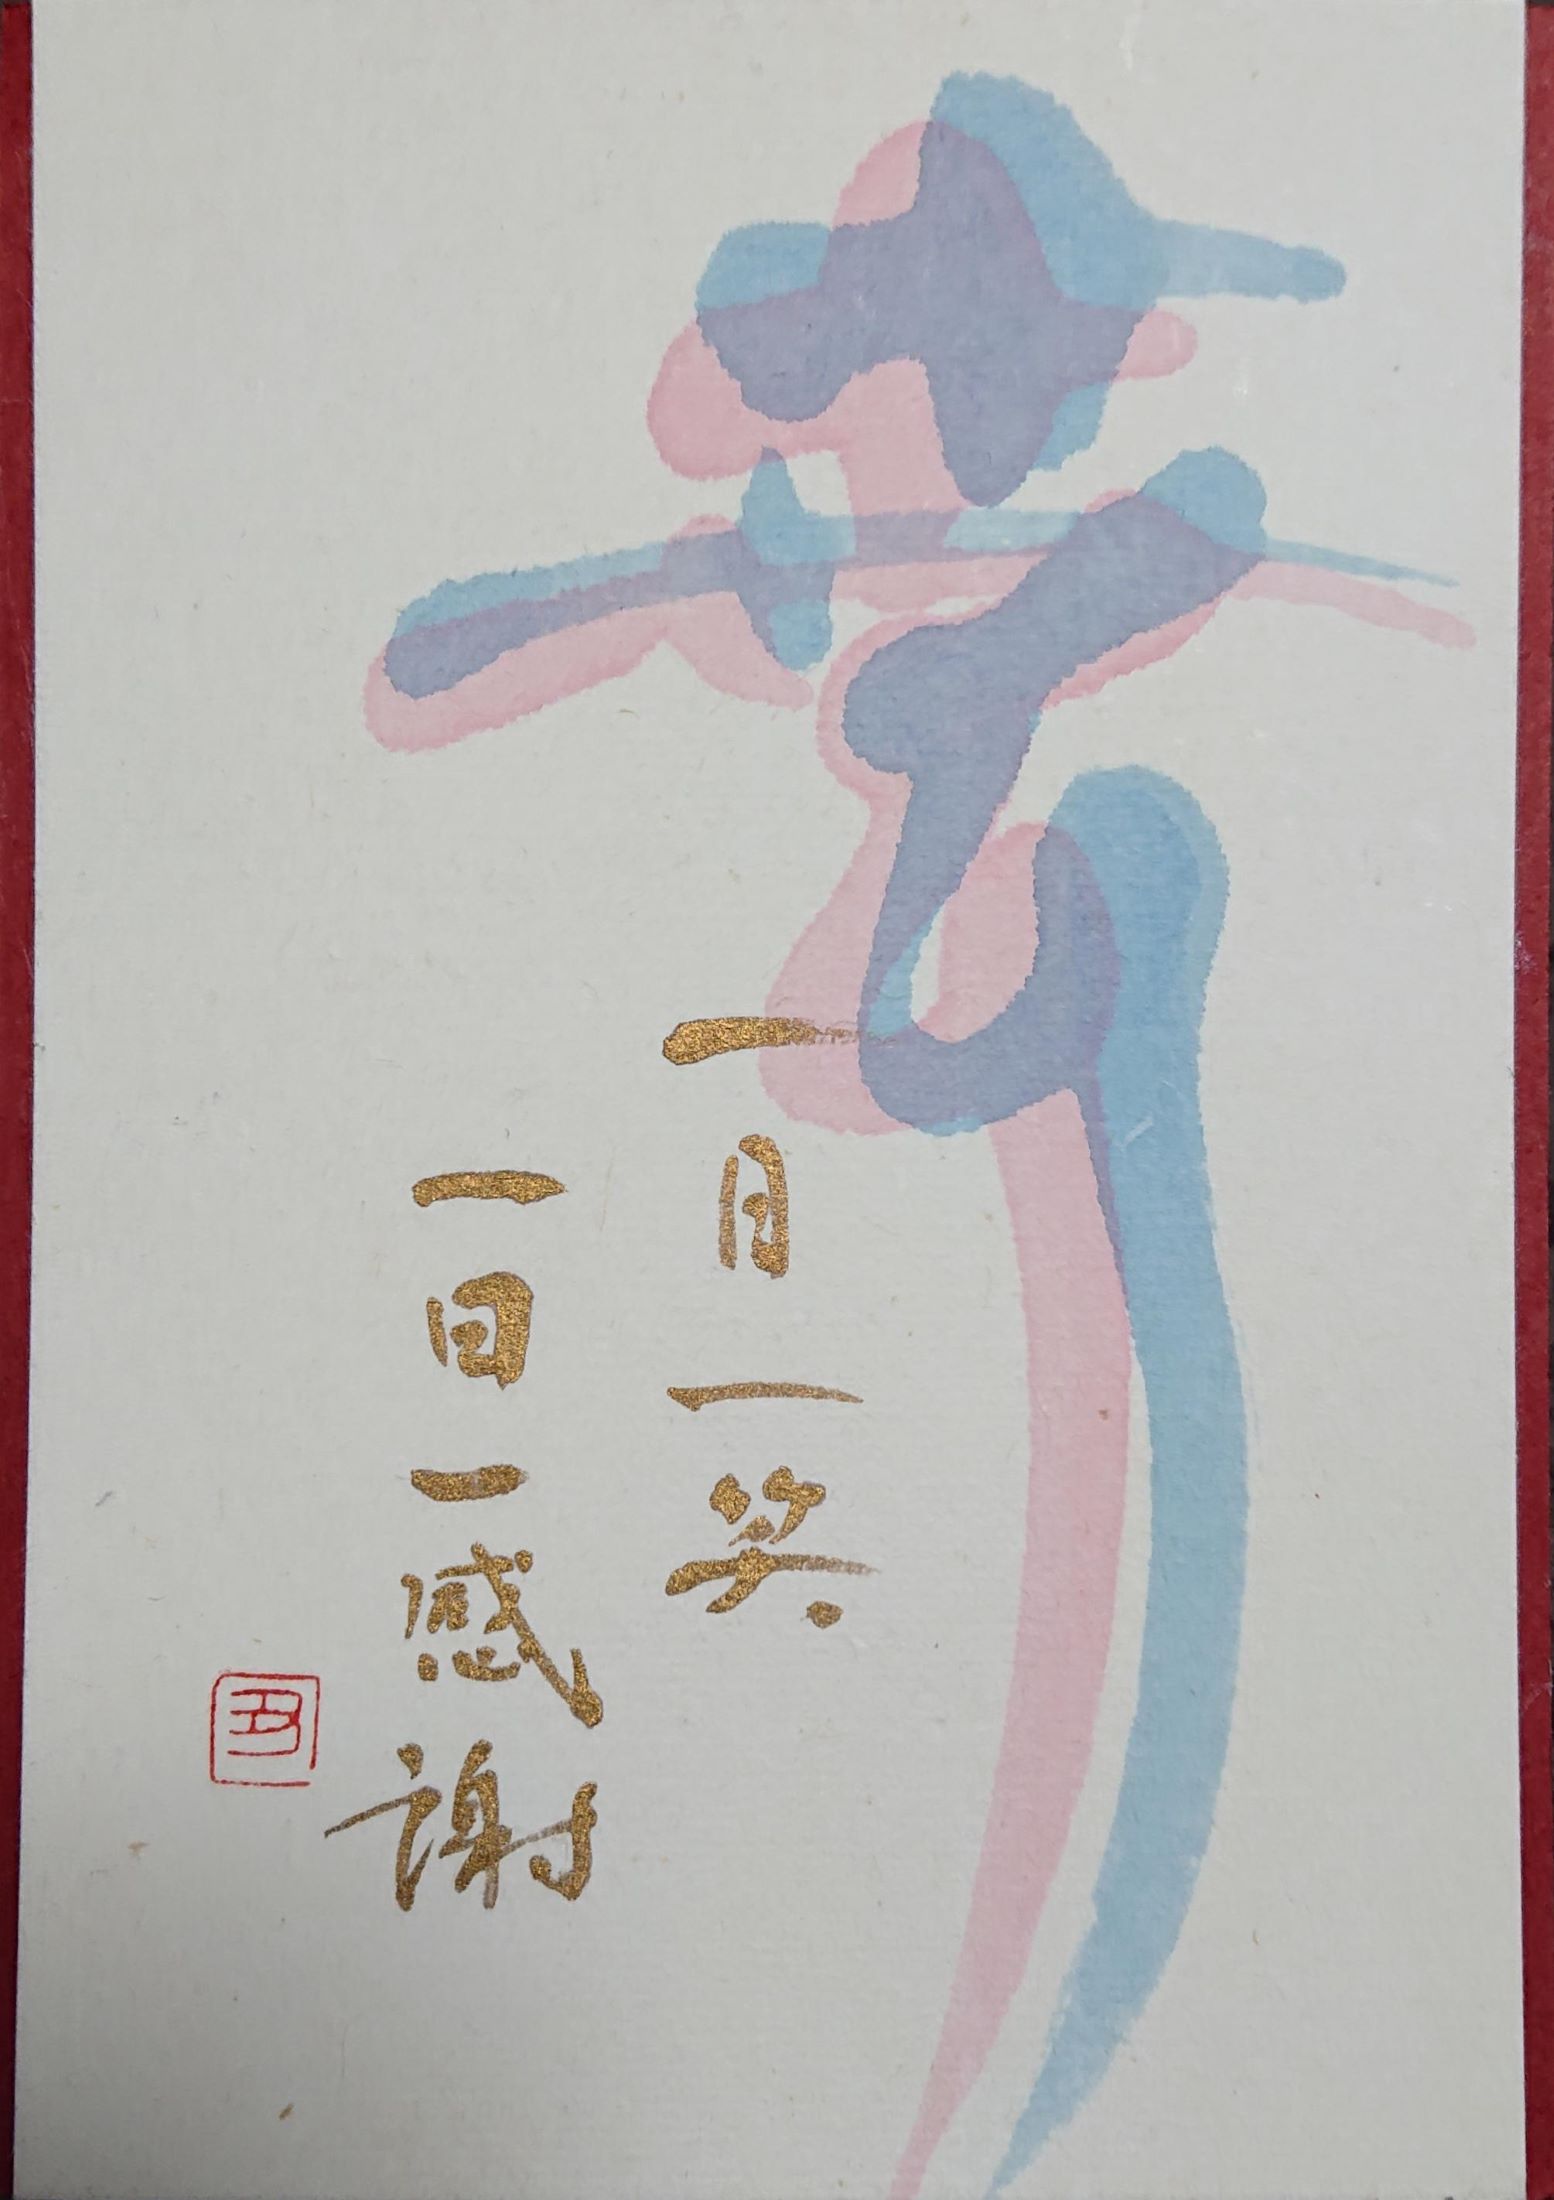 幸
一日一笑
一日一感謝